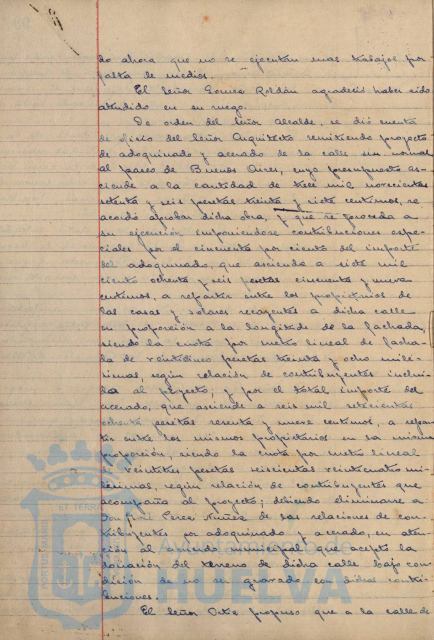 do ahora que no se ejecutan mas trabajos por
falta de medios.
El Señor Gomez Roldán agradeció haber sido
atendido en su ruego.
De orden del Señor Alcalde, se dió cuenta
de oficio del Señor Arquitecto remitiendo proyecto
de adoquinado y acerado de la calle sin nombre
al paseo de Buenos Aires, cuyo presupuesto as-
ciende a la cantidad de trece mil novecientas
setenta y seis pesetas treinta y siete centimos, se
acordó aprobar dicha obra, y que se proceda a
su ejecución imponiendose contribuciones espe-
ciales por el cincuenta por ciento del importe
del adoquinado, que asciende a siete mil
ciento ochenta y seis pesetas cincuenta y nueve
centimos, a repartir entre los propietarios de
las casas y solares recayentes a dicha calle
en proporción a la longitud de la fachada,
siendo la cuota por metro lineal de facha-
da de veinticinco pesetas treinta y ocho milé-
simas, según relación de contribuyentes inclui-
da al proyecto; y por el total importe del
acerado, que asciende a seis mil setecientas
ochenta pesetas sesenta y nueve centimos, a repar-
tir entre los mismos propietarios en la misma
proporción, siendo la cuota por metro lineal
de veintitres pesetas seiscientas veinticuatro mi-
lésimas, según relación de contribuyentes que
acompaña al proyecto; debiendo eliminarse a
Don José Perez Nuñez de las relaciones de con-
tribuyentes por adoquinado y acerado, en aten-
ción al acuerdo municipal que aceptó la
donación del terreno de dicha calle bajo con-
dición de no ser gravado con dichas contri-
buciones.
El Señor propuso que a la calle de
HUELVA